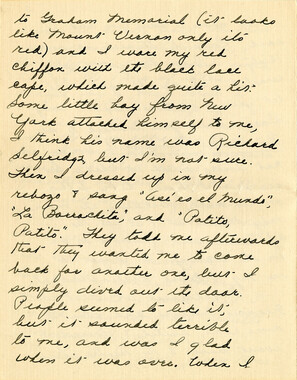 to Graham Memorial (it looks
like Mount Vernon only its
red) and I wore my red
chiffon with the black lace
cape, which made quite a hit.
Some little boy from New
York attached himself to me,
I think his name was Richard
Selfridge, but I'm not sure.
Then I dressed up in my
rebozo & sang "Asi es el Mundo",
"La Borrachita", and "Patito,
Patito." They told me afterwards
that they wanted me to come
back for another one, but I
simply dived out the door.
People seemed to like it,
but it sounded terrible
to me, and was I glad
when it was over. When I